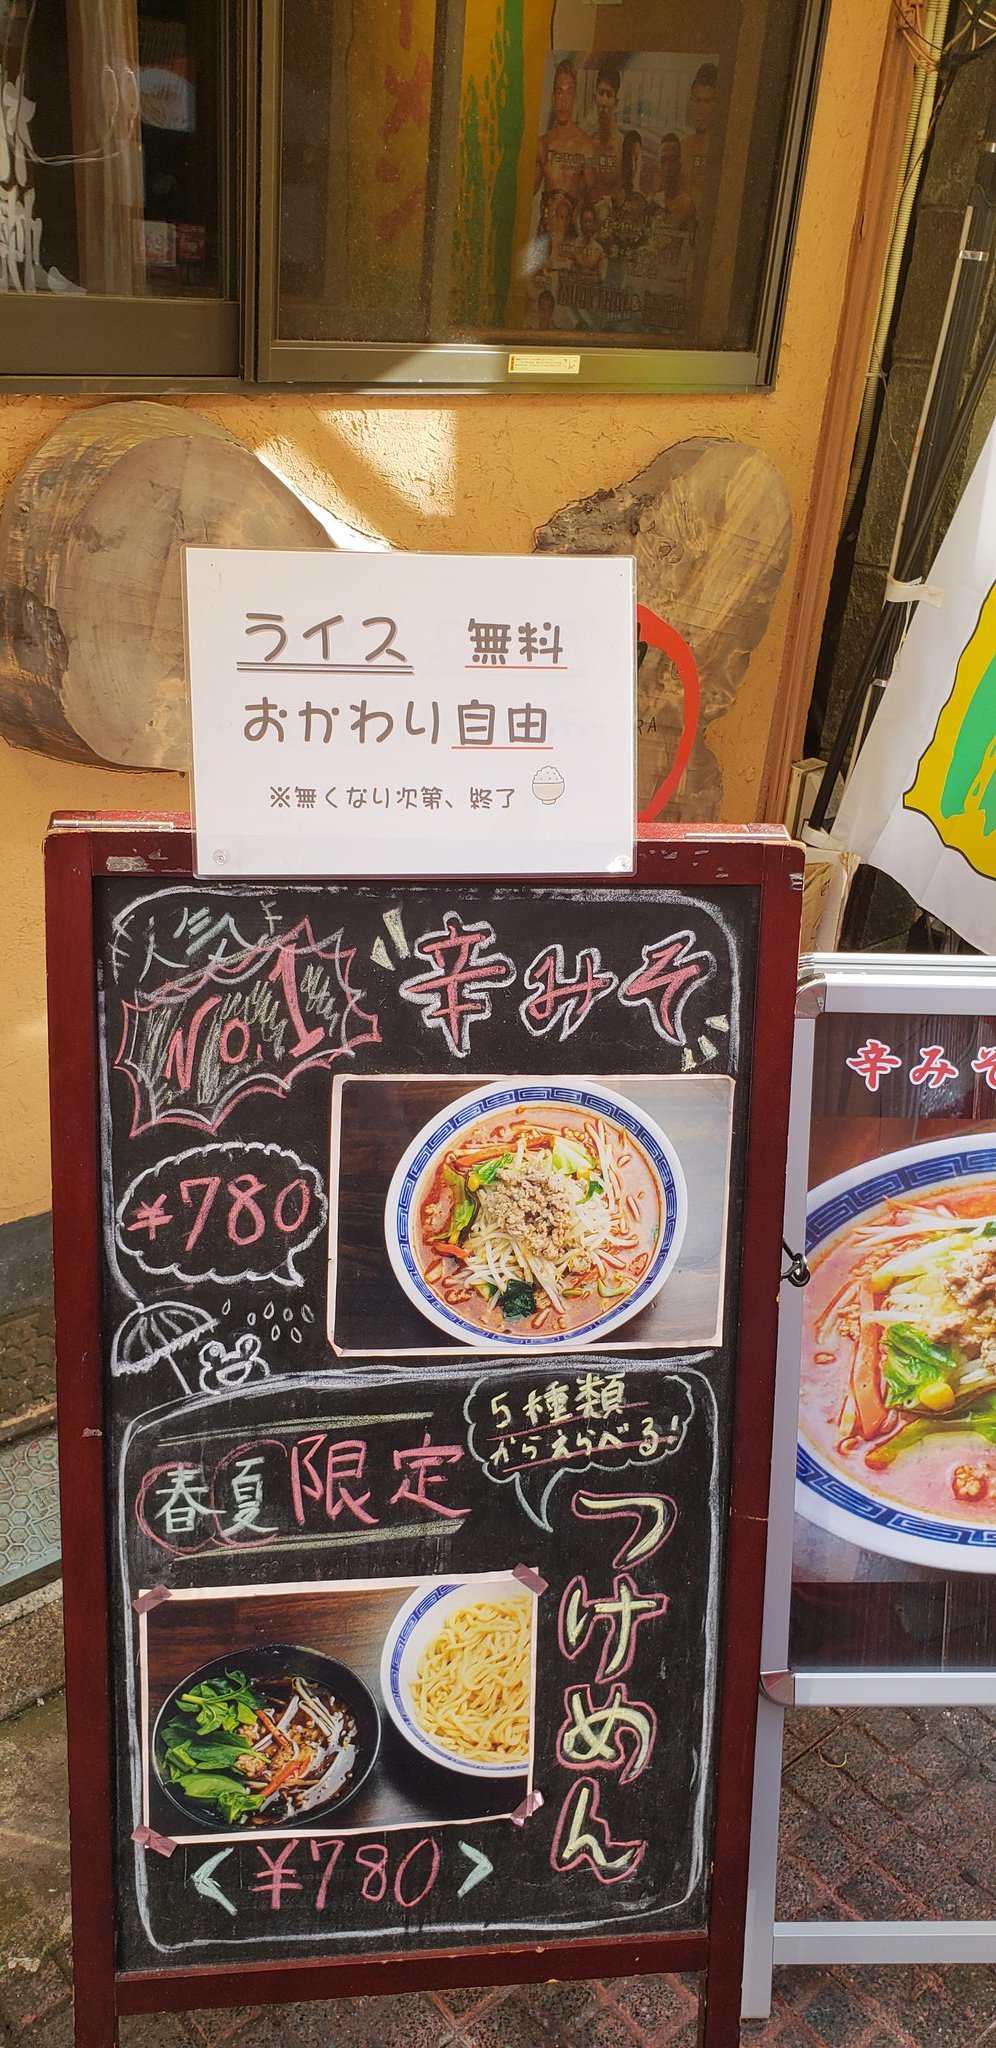 ライス 無料
おかわり自由
※無くなり次第、終了
人気
No.1
辛みそ
¥780
5種類
からえらべる!
春夏限定
つけめん
¥780
辛みそ
RA